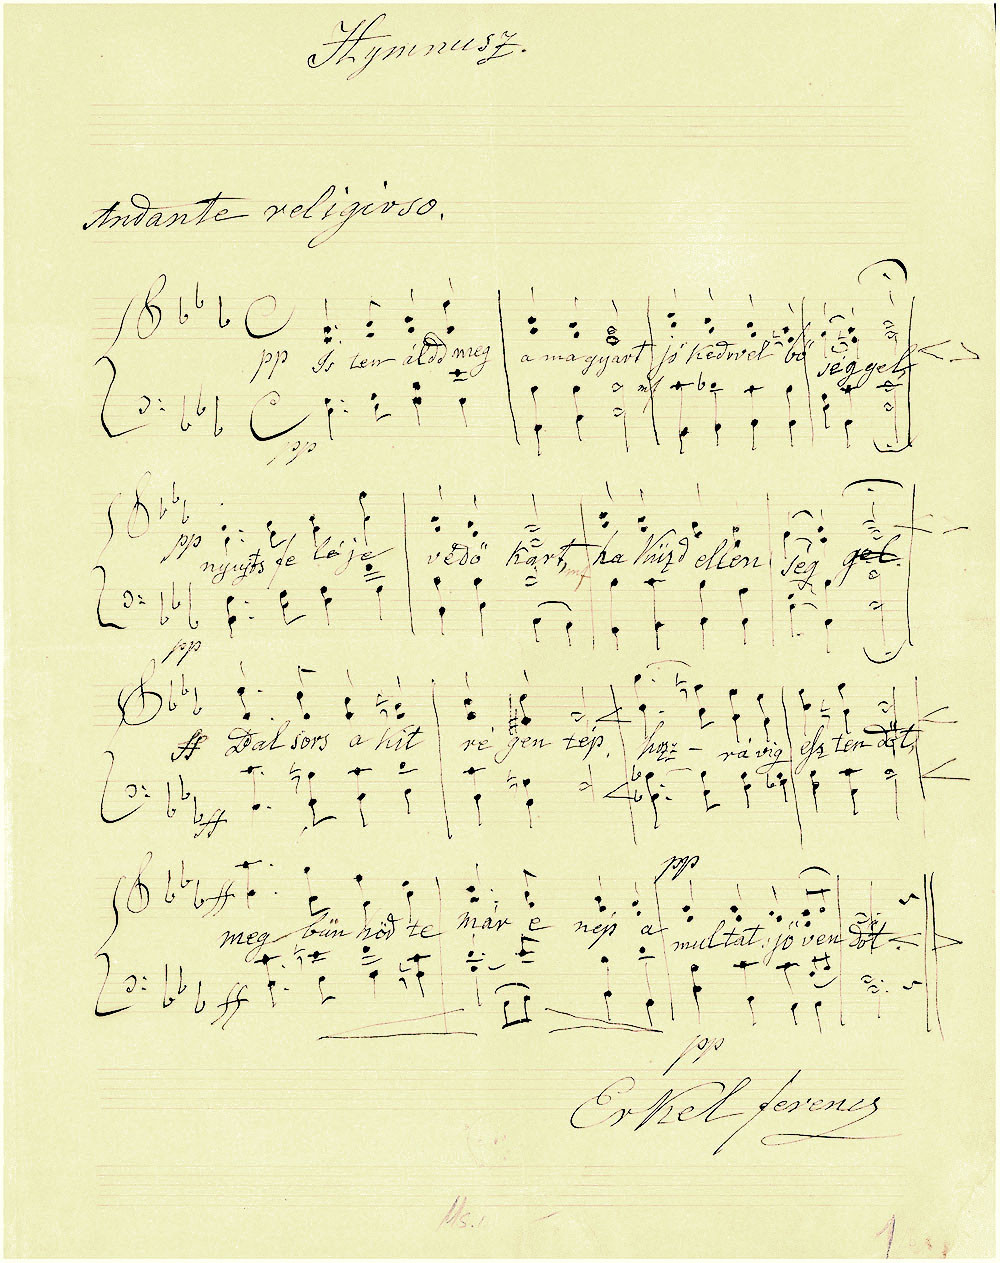 Hymnusz.
Andante religioso.
pp Is ten áldd meg a magyart jó kedvvel bő séggel,
mf
pp
pp nyujts fe lé je védő kart, ha küzd ellen ség gel.
mf
pp
ff Bal sors a kit ré gen tép, hoz - rá víg esz ten dőt,
ff
pp
ff meg bűn hőd te már e nép a multat jö ven dőt.
ff
pp
Erkel ferencz
Ms.
1